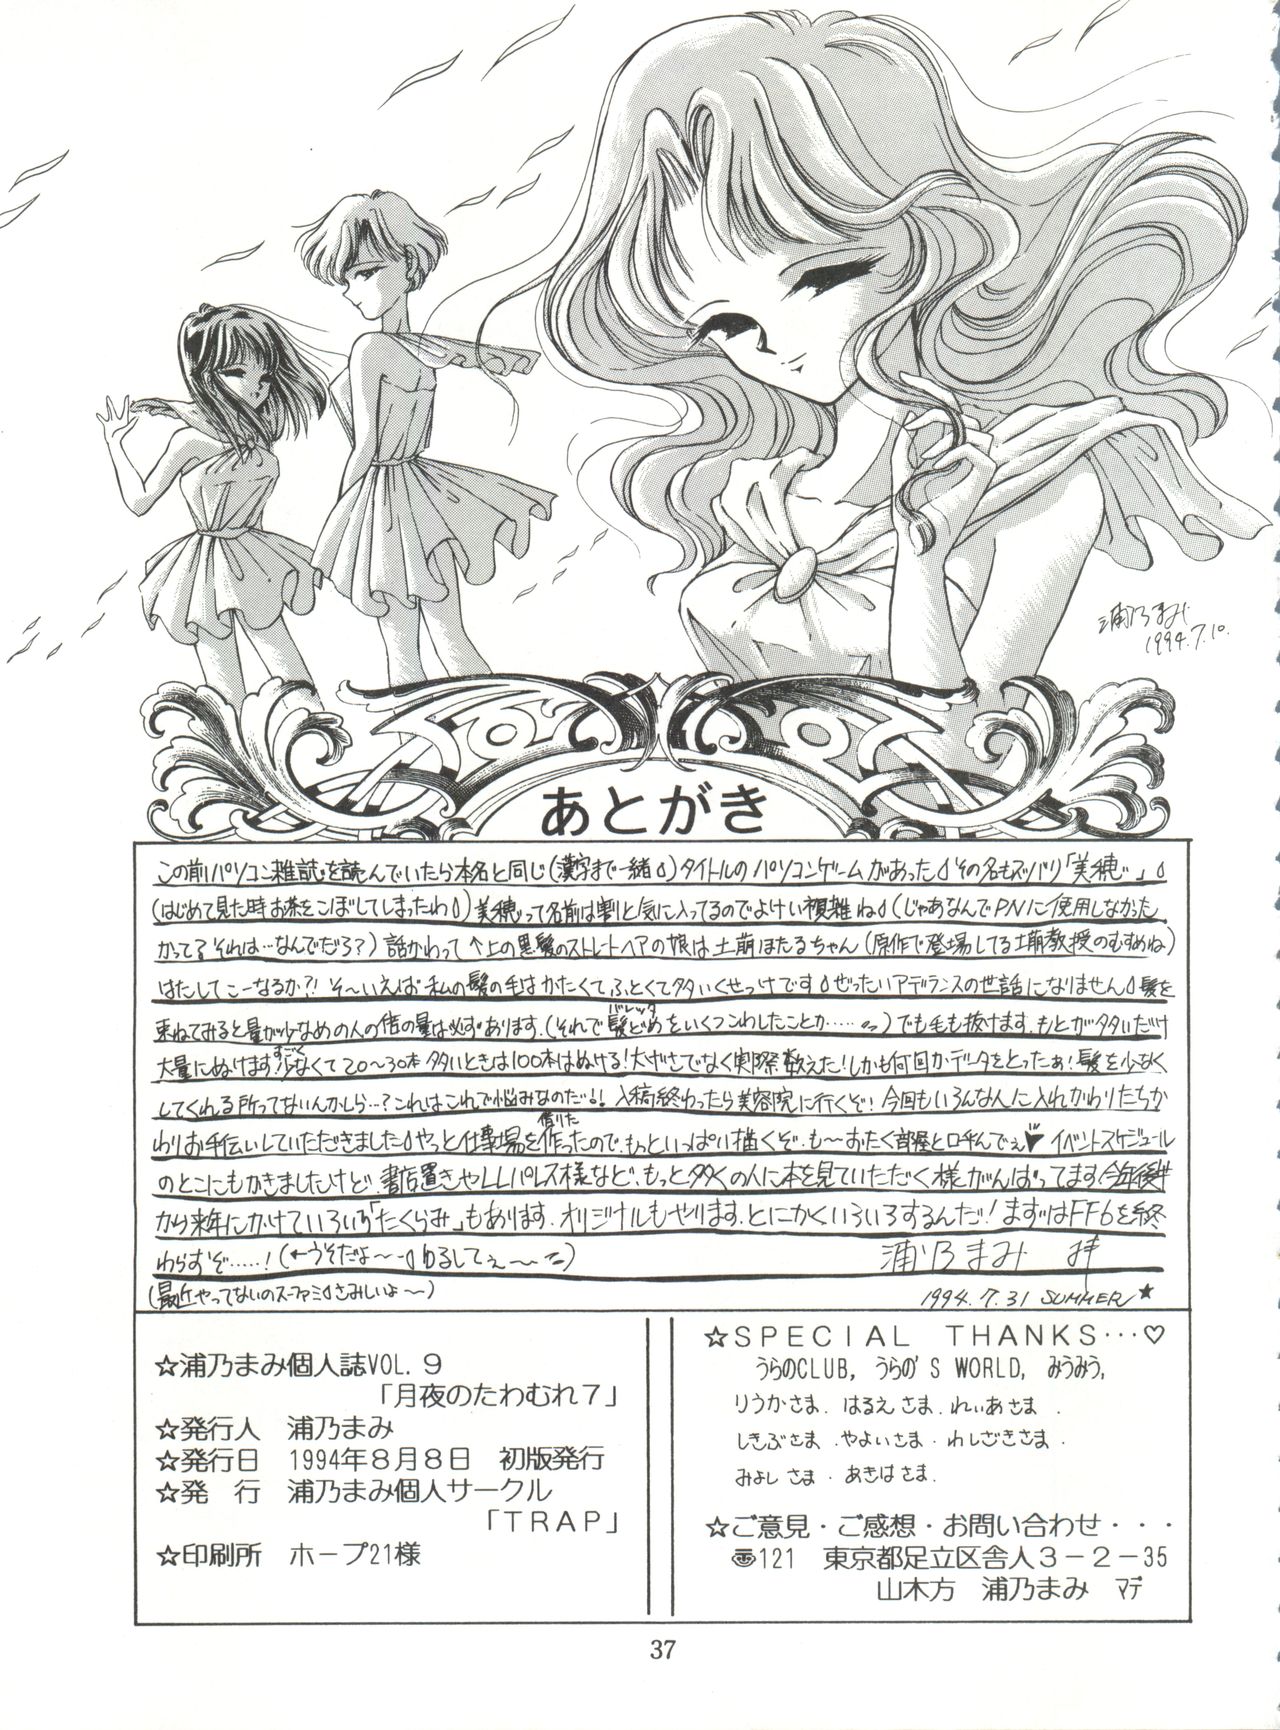 浦乃まみ
1994.7.10.
あとがき
この前パソコン雑誌を読んでいたら本名と同じ(漢字まで一緒)タイトルのパソコンゲームがあった その名もズバリ「美穂」
(はじめて見た時お茶をこぼしてしまったわ)美穂って名前は割と気に入ってるのでよけい複雑ね(じゃあなんでPNに使用しなかった
かってるそれは…なんでだろ?)話かわって↑上の黒髪のストレートヘアの娘は土萠ほたるちゃん(原作で登場してる土萠教授のむすめね)
はたしてこーなるか?!そ〜いえば私の髪の毛はかたくてふとくて多いくせっけです ぜったいアデランスの世話になりません 髪を
束ねてみると量が少なめの人の倍の量は必ずあります.(それで髪どめをいくつこわしたことか……)でも毛も抜けます.もとが多いだけ
バレッタ
大量にぬけます!少なくて20〜30本多いときは100本はぬける!大げさでなく実際数えた!しかも何回かデータをとったぁ!髪を少なく
すごく
してくれる所ってないんかしら…?これはこれで悩みなのだ!入稿終わったら美容院に行くぞ!今回もいろんな人に入れかわりたちか
わりお手伝いしていただきました やっと仕事場を作ったので.もっといっぱい描くぞ.も〜おたく部屋と呼んでぇ♥イベントスケジュール
借りた
のとこにもかきましたけど.書店置きやLLパレス様など.もっと多くの人に本を見ていただく様がんばってます!今年後半
から来年にかけていろいろ「たくらみ」もあります.オリジナルもやります.とにかくいろいろするんだ!まずはFF6を終
わらすぞ……!(←うそだよ〜 ゆるしてぇ〜)
浦乃まみ 拝
(最近やってないのスーファミ さみしいよ〜)
1994.7.31 SUMMER★
☆浦乃まみ個人誌VOL.9
「月夜のたわむれ7」
☆発行人 浦乃まみ
☆発行日 1994年8月8日 初版発行
☆発 行 浦乃まみ個人サークル
「TRAP」
☆印刷所 ホープ21様
☆SPECIAL THANKS…♡
うらのCLUB, うらの'S WORLD, みうみう,
りうかさま.はるえさま.れいあさま.
しきぶさま.やよいさま.わしざきさま.
みよしさま.あきはさま.
☆ご意見・ご感想・お問い合わせ・・・
〠121 東京都足立区舎人3-2-35
山木方 浦乃まみ マデ
37